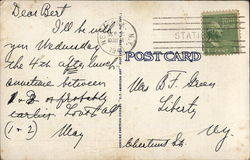 Dear Bert
I'll be with
you Wednesday
the 4th after lunch
sometime between
1 & 2 or probably
earlier. Look at
(1 & 2) May
N.Y.
STATION
POST CARD
Mrs B F Green
Liberty
Ny.
Chestnut St.